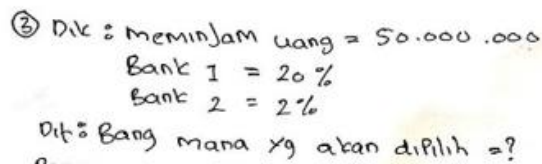 ③ Dik : meminjam uang = 50.000.000
Bank 1 = 20 %
Bank 2 = 2%
Dit : Bang mana yg akan dipilih =?